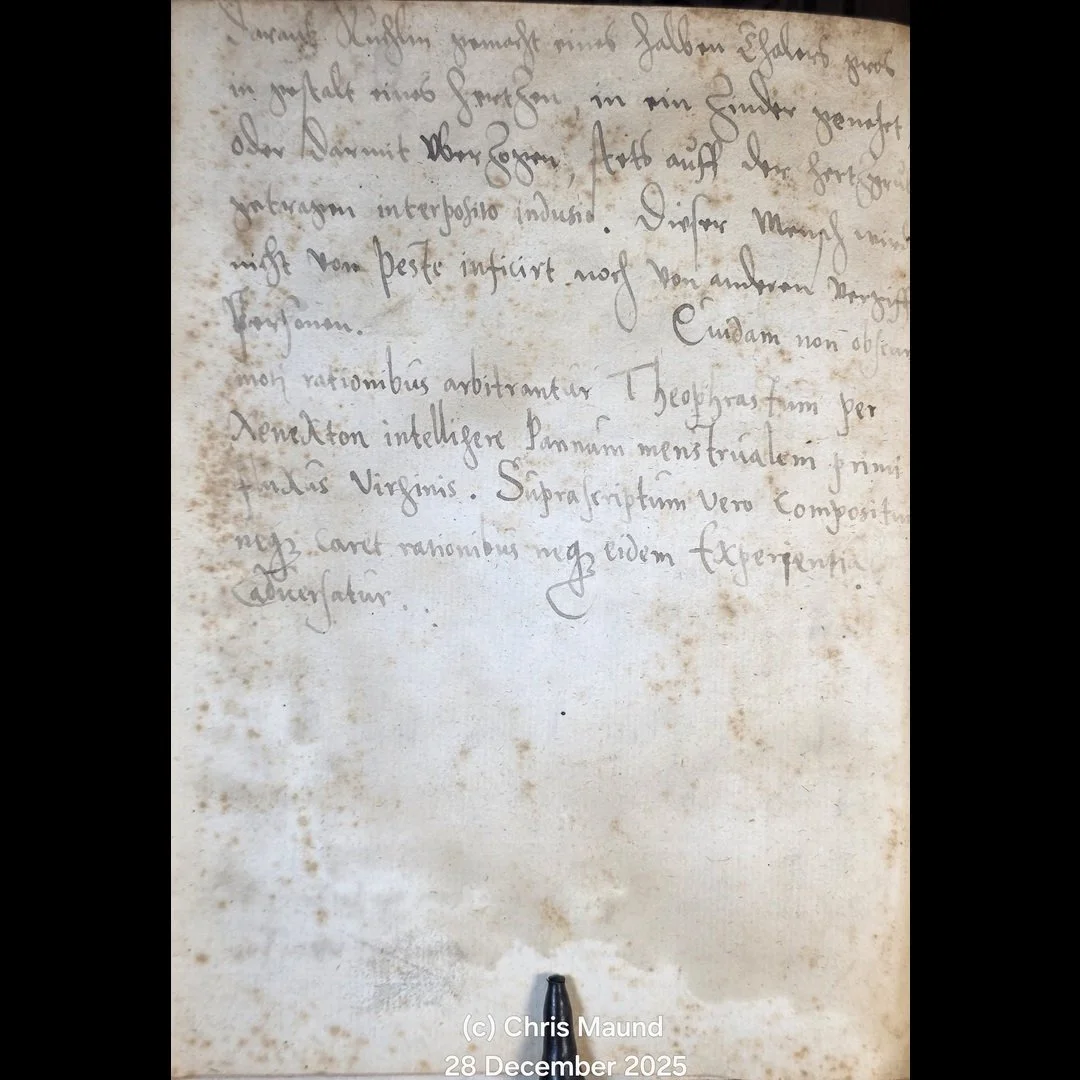 Daraus Küchlin gemacht eines halben Thalers gros
in gestalt eines Hertzen, in ein Zinder genehet
oder darmit vberzogen, stets auff der hertzgru
getragen interposito indusio. Dieser Mensch wird
nicht von Peste inficirt noch von anderen vergiff
Personen. Quidam non obscur
rationibus arbitrantur Theophrastum per
Xenexton intelligere Pannum menstrualem primi
fluxus Virginis. Suprascriptum vero Compositum
neq3 caret rationibus neq3 eidem Experientia
adversatur.
(c) Chris Maund
28 December 2025